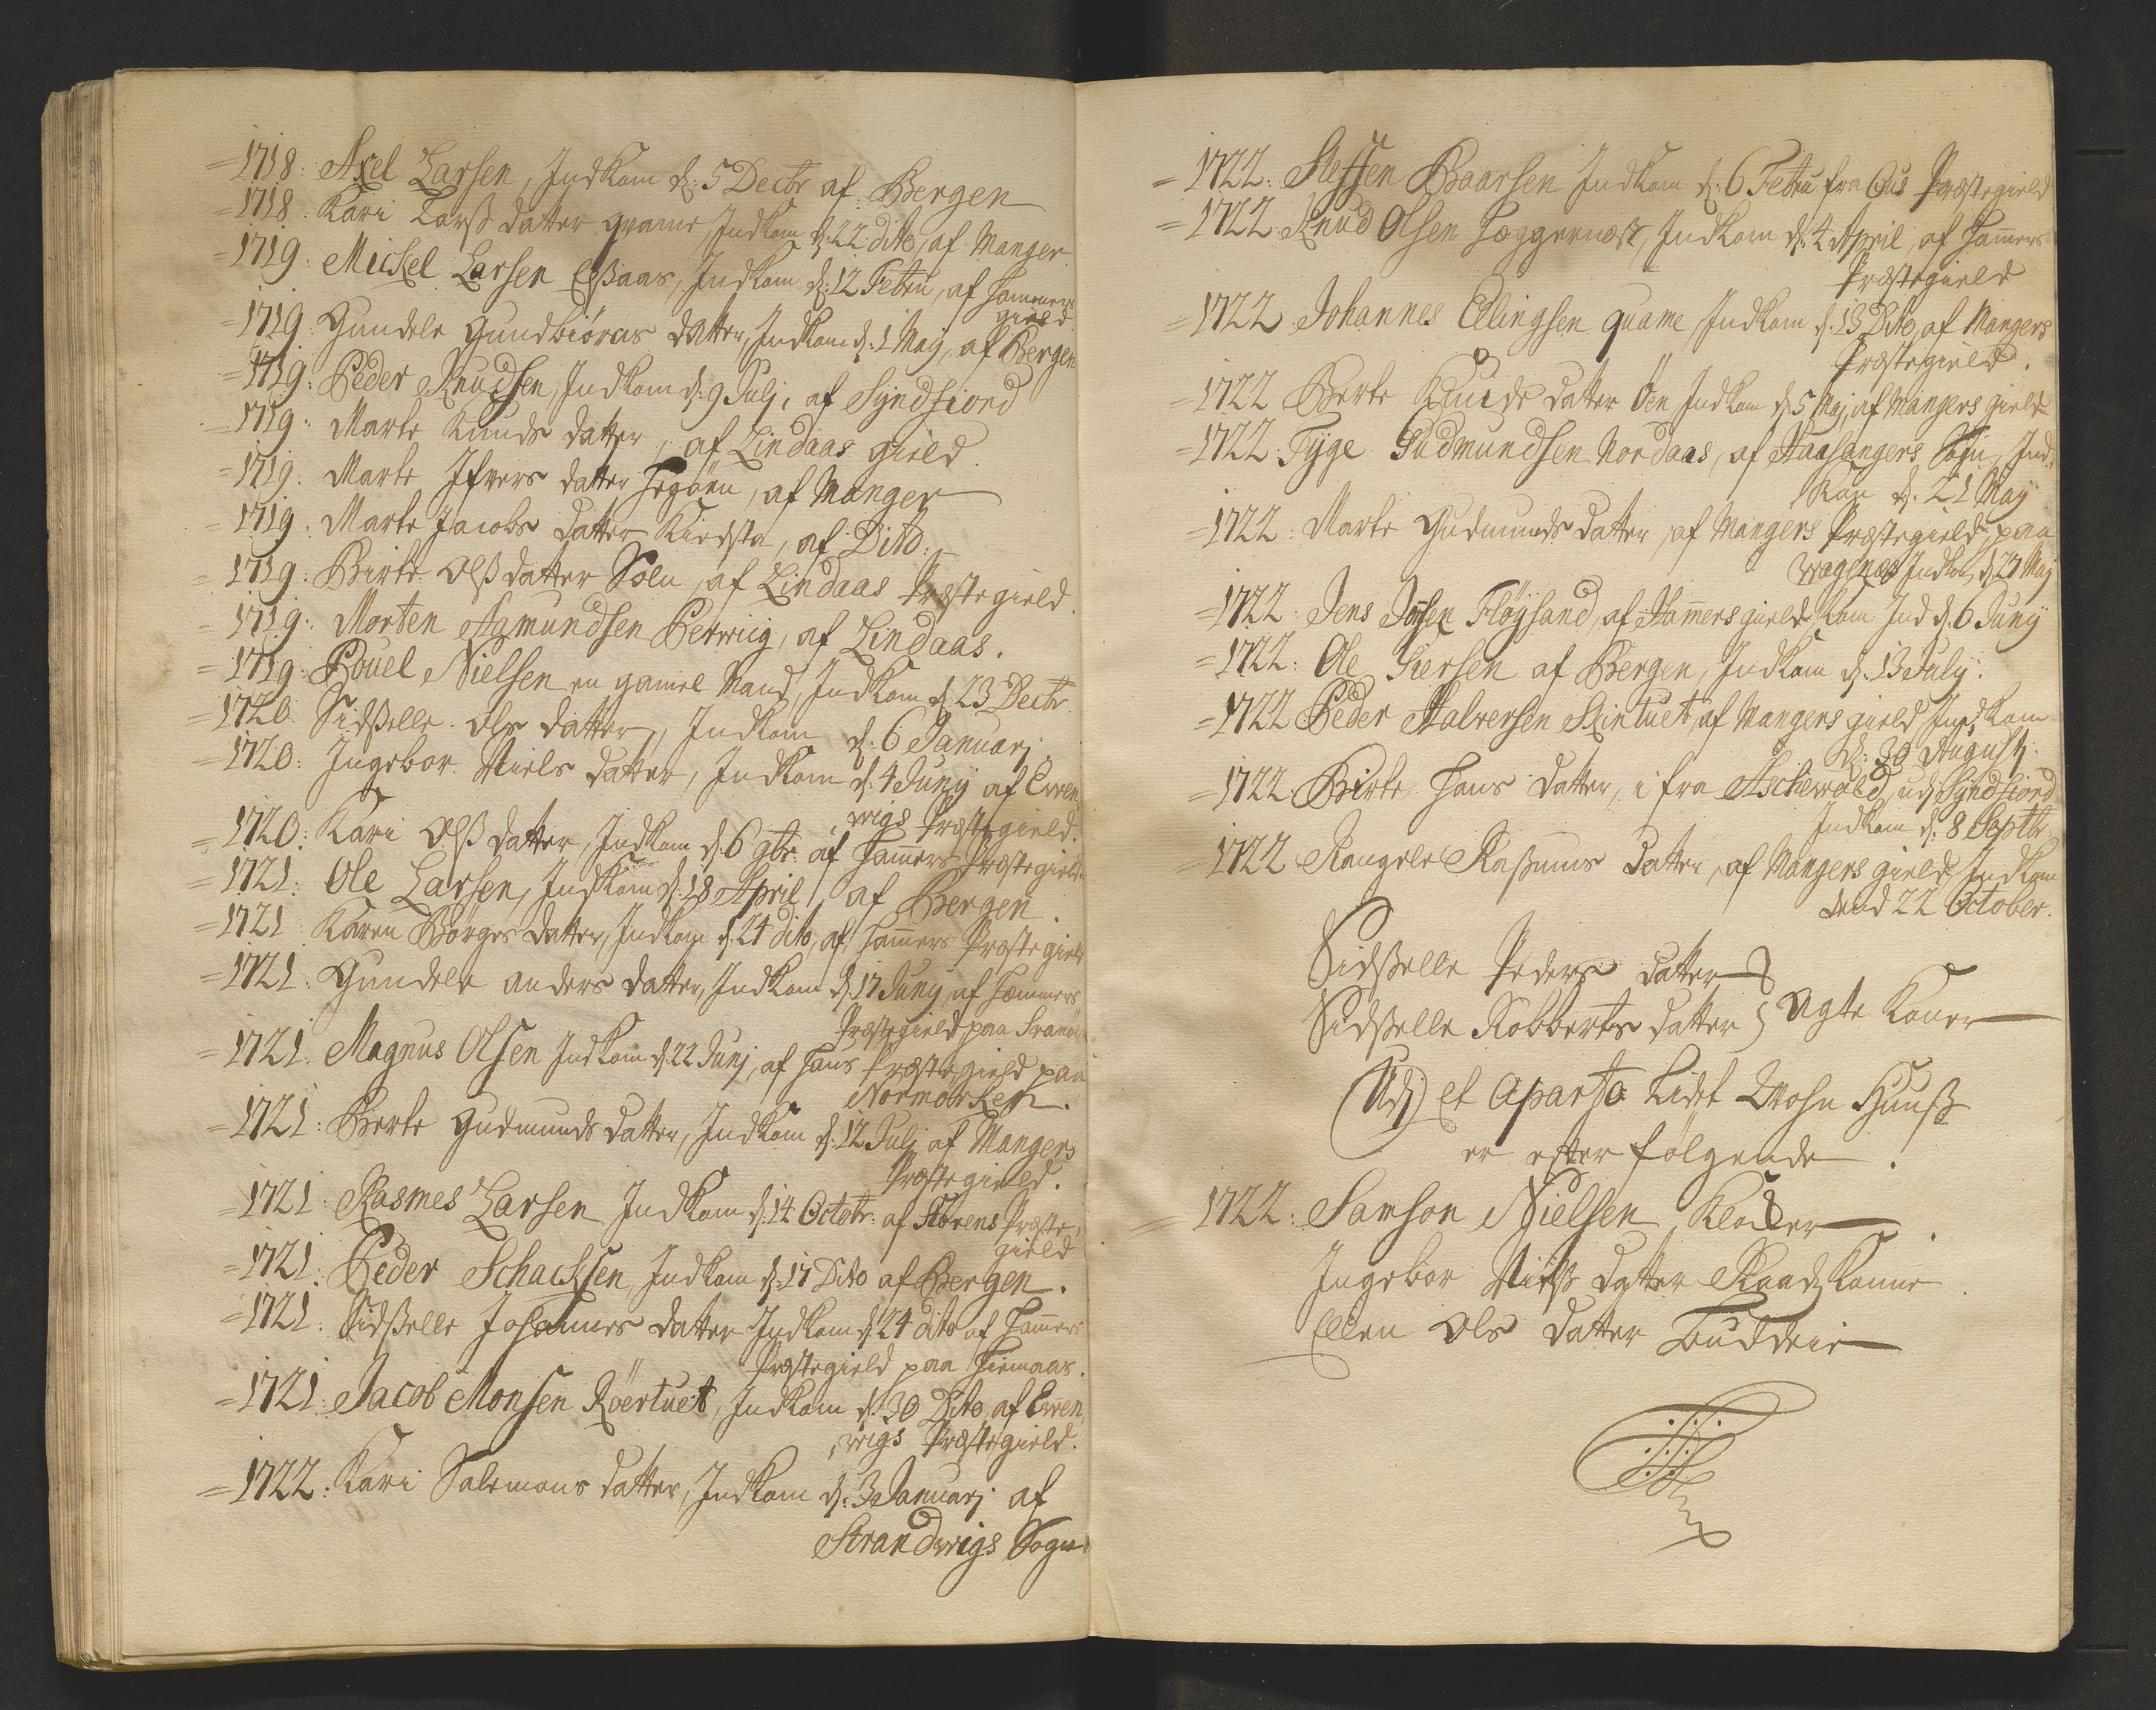 =1718: Axel Larsen, Indkom d: 5 Decbr af Bergen
=1718: Kari Larß datter qvame, Indkom d: 22 dito, af Manger
=1719: Michel Larsen Eßaas, Indkom d: 12 Febru, af Hammers
gield
=1719: Gundele Gundbiöras datter, Indkom d: 1 Maij, af Bergen
=1719: Peder Knudsen, Indkom d: 9 Julj, af Syndfiord
=1719: Marte Knuds datter, af Lindaas gield.
=1719: Marte Ifvers datter Hegöen, af Manger
=1719: Marte Jacobs datter Kiedsta, af Dito.
=1719: Birte Olß datter Soln, af Lindaas Præstegield.
=1719: Morten Aamundsen Herwiig, af Lindaas.
=1719: Pouel Nielsen en gamel Mand, Indkom d: 23 Decbr
=1720: Sidßelle Ols datter, Indkom d: 6 Januarj.
=1720: Ingebor Niels datter, Indkom d: 4 Junij af Even,
,wigs Præstegield.
=1720: Kari Olß datter, Indkom d: 6 9br: af Hamers Præstegield
=1721: Ole Larsen, Indkom d: 18 April, af Bergen.
=1721 Karen Börges datter, Indkom d: 24 dito, af Hamers Præstegield
=1721: Gundele anders datter, Indkom d: 17 Junij, af Hammers
Præstegield paa
=1721. Magnus Olsen Indkom d: 22 Junj, af Haus Præstegield paa
Normarken.
=1721: Berte Gudmunds datter, Indkom d: 12 Julj af Mangers
Præstegield.
=1721: Rasmes Larsen Indkom d: 14 Octobr: af Störens Præste,
gield
=1721: Peder Schacksen, Indkom d: 17 Dito af Bergen.
=1721: Sidßelle Johannes datter Indkom d: 24 dito af Hamers
Præstegield paa Hiemaas.
=1721: Jacob Monsen Röertuet, Indkom d: 30 Dito, af Even,
,wigs Præstegield.
=1722: Kari Salemons datter, Indkom d: 3 Januarj af
Strandwigs Sogn
=1722: Steffen Baarsen Indkom d: 6 Febru fra Ous Præstegield
=1722: Knud Olsen Hæggernæst, Indkom d: 4 April, af Hamers
Præstegield
=1722 Johannes Ellingsen quame Indkom d: 13 Dito, af Mangers
Præstegield.
=1722 Berte Knuds datter Öen Indkom d: 5 Maj, af Mangers gield
=1722: Tyge Gudmundsen Nordaas, af Haasangers Sogn, Ind,
Kom d: 21 Maij
=1722: Marte Gudmunds datter, af Mangers Præstegield, paa
Wagenes Indkom d: 27 Maj
=1722: Jens Jensen Flöysand, af Hamers gield, kom Ind d: 6 Junij
=1722: Ole Siersen af Bergen, Indkom d: 13 Julij.
=1722 Peder Halversen Skintuet, af Mangers gield Indkom
d: 30 Augustj.
=1722. Birte Hans datter, i fra Aschewold udj Syndfiord
Indkom d: 8 Septbr
=1722 Rangele Raßmus datter, af Mangers gield, Indkom
dend 22 October.
Sidßelle Peders datter
Sidßelle Robberts datter } Ægte Koner
Udj et aparto Lidet Wohn Huuß
er efter følgende.
=1722: Samson Nielsen, Klocker
Ingebor Nielß datter Raadz Konne
Ellen Ols datter Buddeie